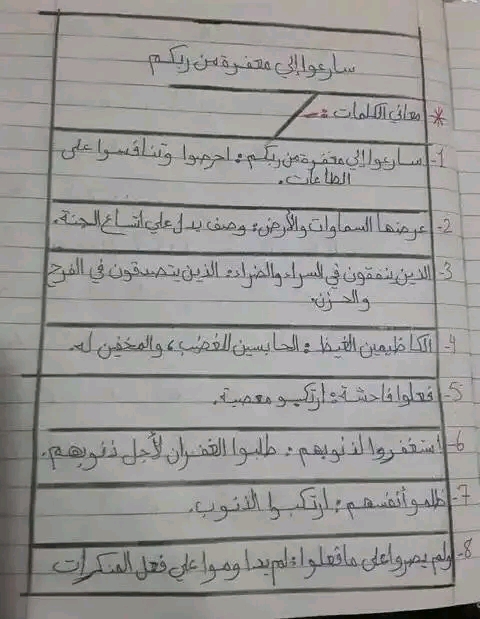 سارعوا إلى مغفرة من ربكم
* معاني الكلمات :-
1- سارعوا إلى مغفرة من ربكم : احرصوا وتنافسوا على
الطاعات.
2- عرضها السماوات والأرض : وصف يدل على اتساع الجنة.
3- الذين ينفقون في السراء والضراء : الذين يتصدقون في الفرح
والحزن.
4- الكاظيمين الغيظ : الحابسين للغضب، والمخفين له.
5- فعلوا فاحشة : ارتكبو معصية.
6- استغفروا لذنوبهم : طلبوا الغفران لأجل ذنوبهم.
7- ظلمو أنفسهم : ارتكبوا الذنوب.
8- ولم يصروا على ما فعلوا : لم يداوموا على فعل المنكرات